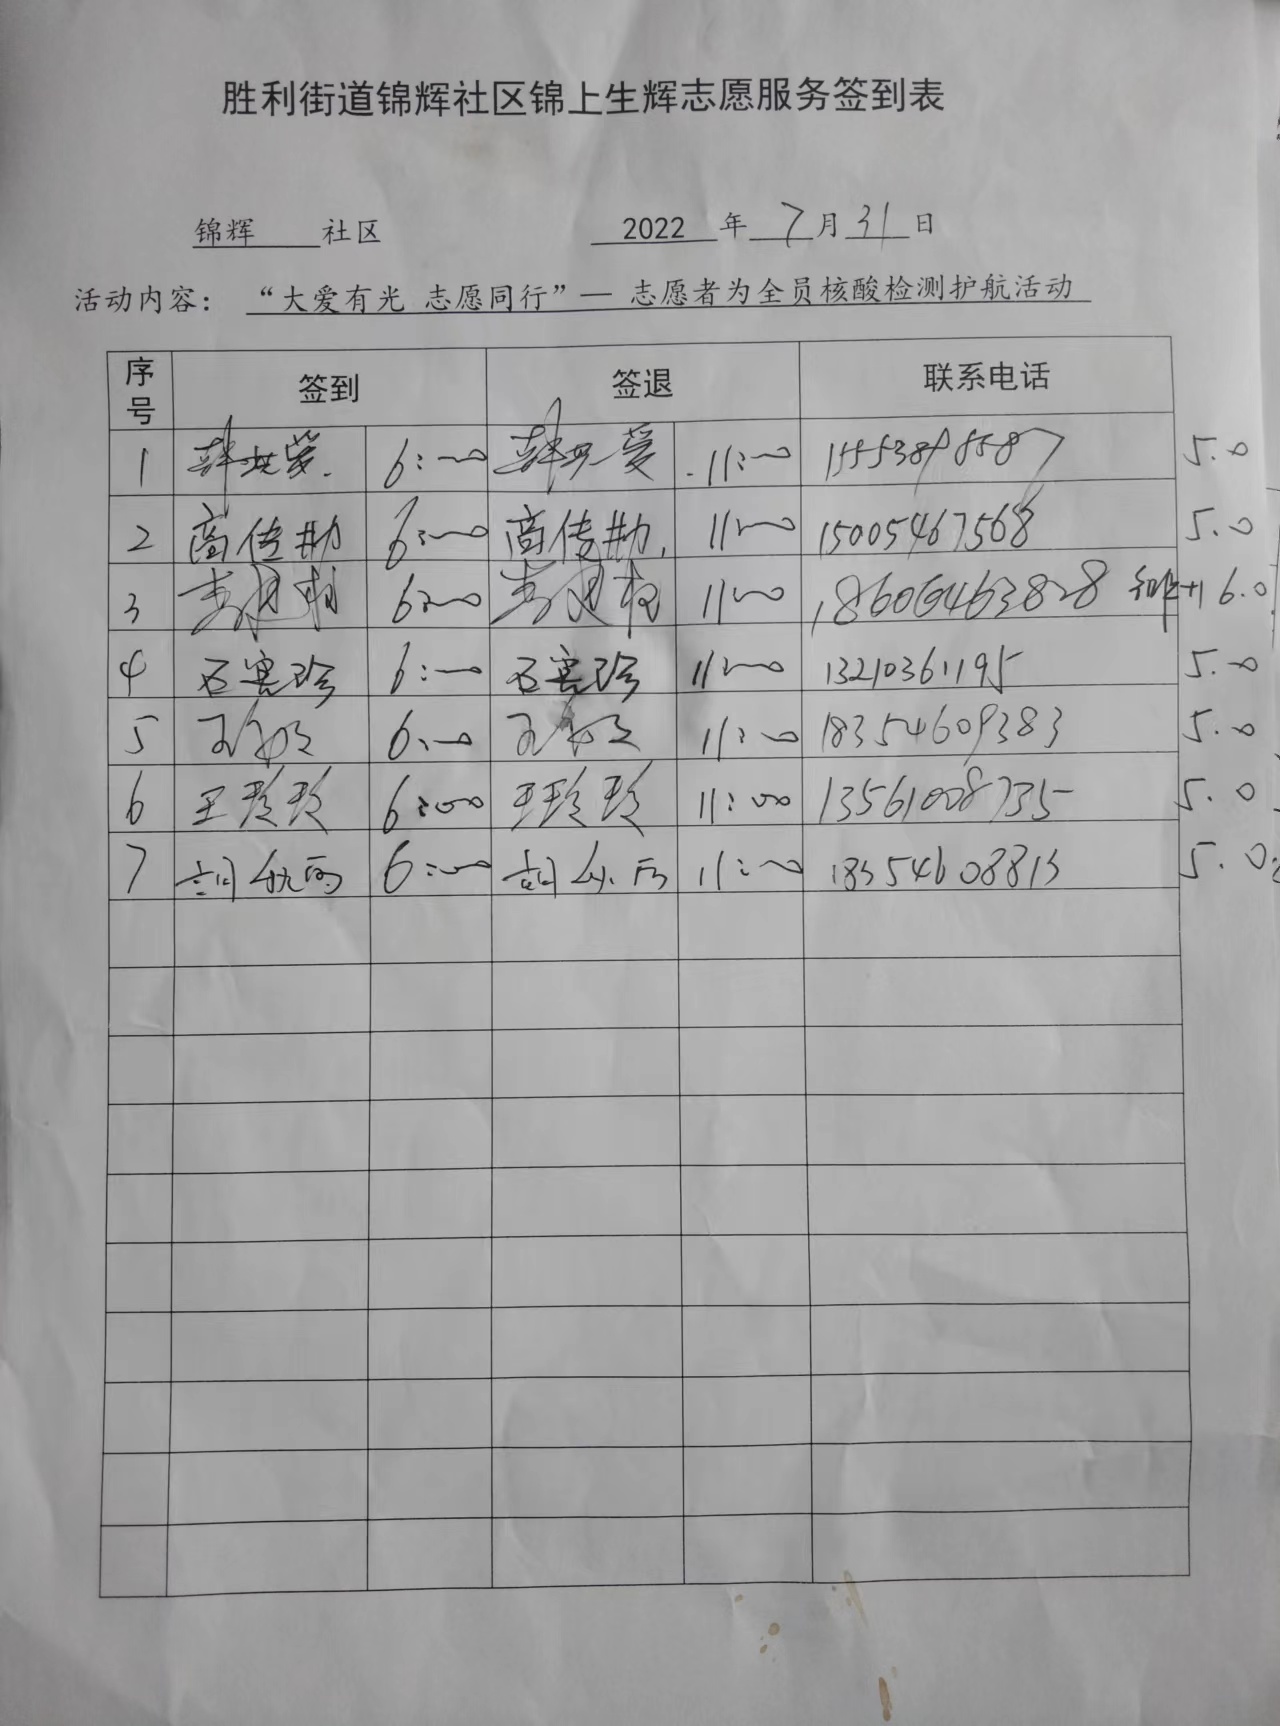 胜利街道锦辉社区锦上生辉志愿服务签到表
锦辉 社区 2022 年 7 月 31 日
活动内容： “大爱有光 志愿同行”— 志愿者为全员核酸检测护航活动
序号 签到 签退 联系电话
1 6:00 11:00 5.0
2 商传勋 6:00 商传勋 11:00 15005467568 5.0
3 6:00 11:00 18606463828 +1 6.0
4 石宪珍 6:00 石宪珍 11:00 13210361195 5.0
5 6:00 11:00 18354609383 5.0
6 王玲玲 6:00 王玲玲 11:00 13561008735 5.0
7 6:00 11:00 18354608813 5.0